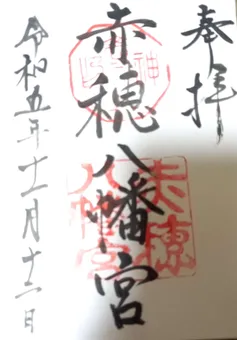 奉拝
赤穂八幡宮
赤穂
八幡宮
令和五年十一月十二日